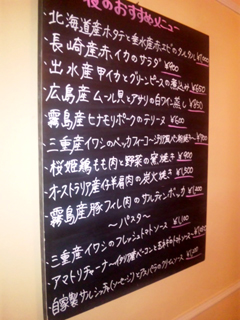 夜のおすすめメニュー
・北海道産ホタテと垂水産赤エビのタルタル ¥1,000
・長崎産赤イカのサラダ ¥900
・出水産甲イカとグリーンピースの煮込み ¥850
・広島産ムール貝とアサリの白ワイン蒸し ¥950
・霧島産ヒナモリポークのテリーヌ ¥600
・三重産イワシのベッカフィーコ
・桜姫鶏もも肉と野菜の窯焼き ¥900
・オーストラリア産仔羊肩肉の炭火焼き ¥1,300
・霧島産豚フィレ肉のサルティンボッカ ¥1,400
～パスタ～
・三重産イワシのフレッシュトマトソース ¥1,100
・アマトリチャーナ
・自家製サルシッチャ(ソーセージ)と